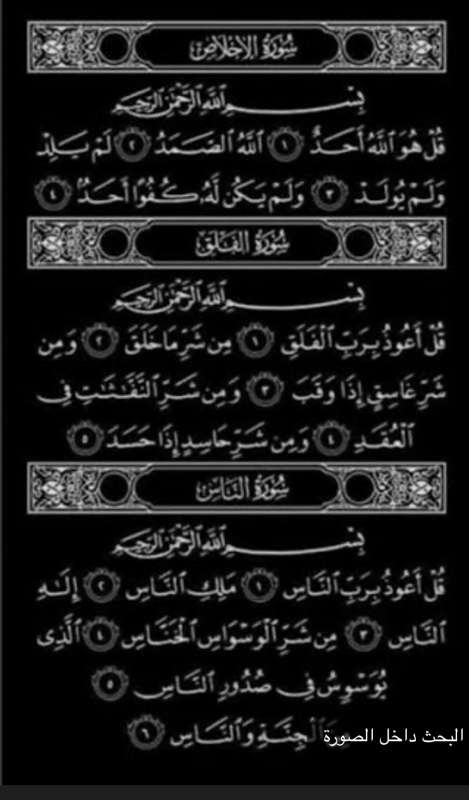 سُورَةُ الإِخْلَاصِ
بِسْمِ اللَّهِ الرَّحْمَٰنِ الرَّحِيمِ
قُلْ هُوَ اللَّهُ أَحَدٌ ١ اللَّهُ الصَّمَدُ ٢ لَمْ يَلِدْ
وَلَمْ يُولَدْ ٣ وَلَمْ يَكُن لَّهُ كُفُوًا أَحَدٌ ٤
سُورَةُ الفَلَقِ
بِسْمِ اللَّهِ الرَّحْمَٰنِ الرَّحِيمِ
قُلْ أَعُوذُ بِرَبِّ الْفَلَقِ ١ مِن شَرِّ مَا خَلَقَ ٢ وَمِن
شَرِّ غَاسِقٍ إِذَا وَقَبَ ٣ وَمِن شَرِّ النَّفَّٰثَٰتِ فِي
الْعُقَدِ ٤ وَمِن شَرِّ حَاسِدٍ إِذَا حَسَدَ ٥
سُورَةُ النَّاسِ
بِسْمِ اللَّهِ الرَّحْمَٰنِ الرَّحِيمِ
قُلْ أَعُوذُ بِرَبِّ النَّاسِ ١ مَلِكِ النَّاسِ ٢ إِلَٰهِ
النَّاسِ ٣ مِن شَرِّ الْوَسْوَاسِ الْخَنَّاسِ ٤ الَّذِي
يُوَسْوِسُ فِي صُدُورِ النَّاسِ ٥
الْجِنَّةِ وَالنَّاسِ ٦
البحث داخل الصورة